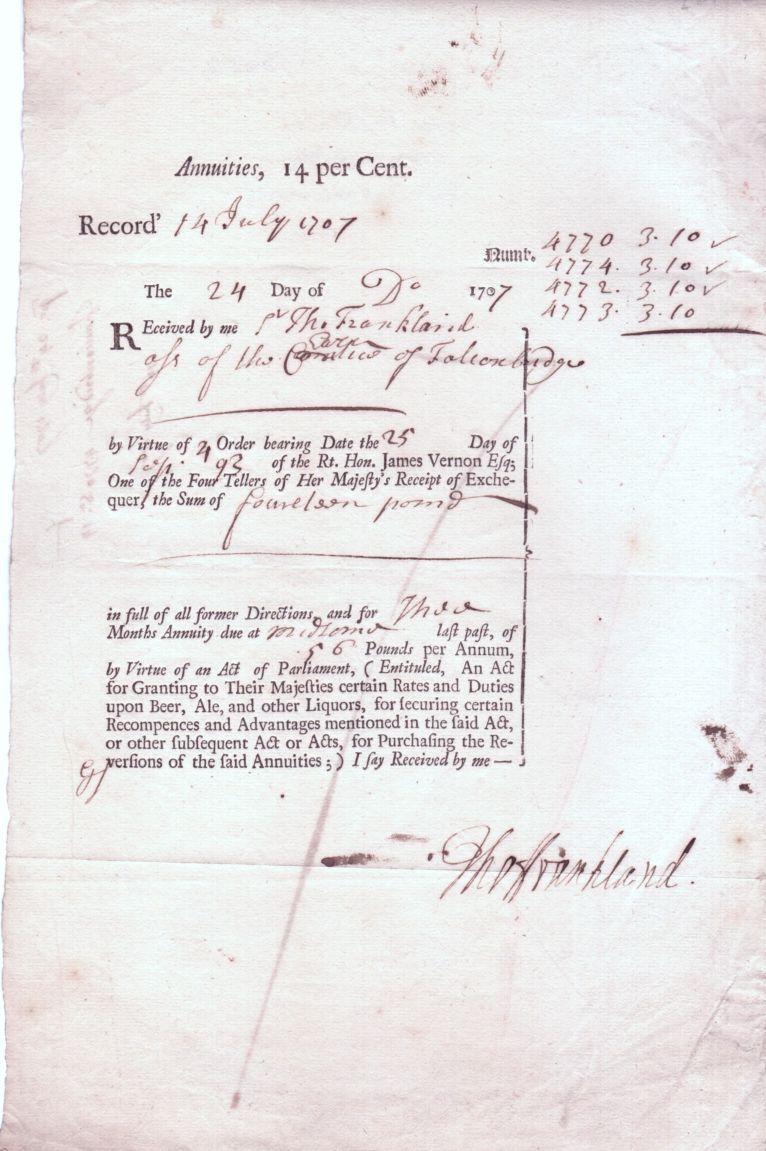 Annuities, 14 per Cent.
Record' 14 July 1707
Numb.
4770 3.10
4774. 3.10
4772. 3.10
4773. 3.10
The 24 Day of Do 1707
REceived by me Sr Tho Frankland
ass of the Earle of Falconbridge
by Virtue of 4 Order bearing Date the 25 Day of
Sept. 93 of the Rt. Hon. James Vernon Eſq;
One of the Four Tellers of Her Majeſty's Receipt of Exche-
quer, the Sum of fourteen pound
in full of all former Directions, and for Three
Months Annuity due at midsomr laſt paſt, of
56 Pounds per Annum,
by Virtue of an Act of Parliament, (Entituled, An Act
for Granting to Their Majeſties certain Rates and Duties
upon Beer, Ale, and other Liquors, for ſecuring certain
Recompences and Advantages mentioned in the ſaid Act,
or other ſubſequent Act or Acts, for Purchaſing the Re-
verſions of the ſaid Annuities;) I ſay Received by me —
Tho Frankland.